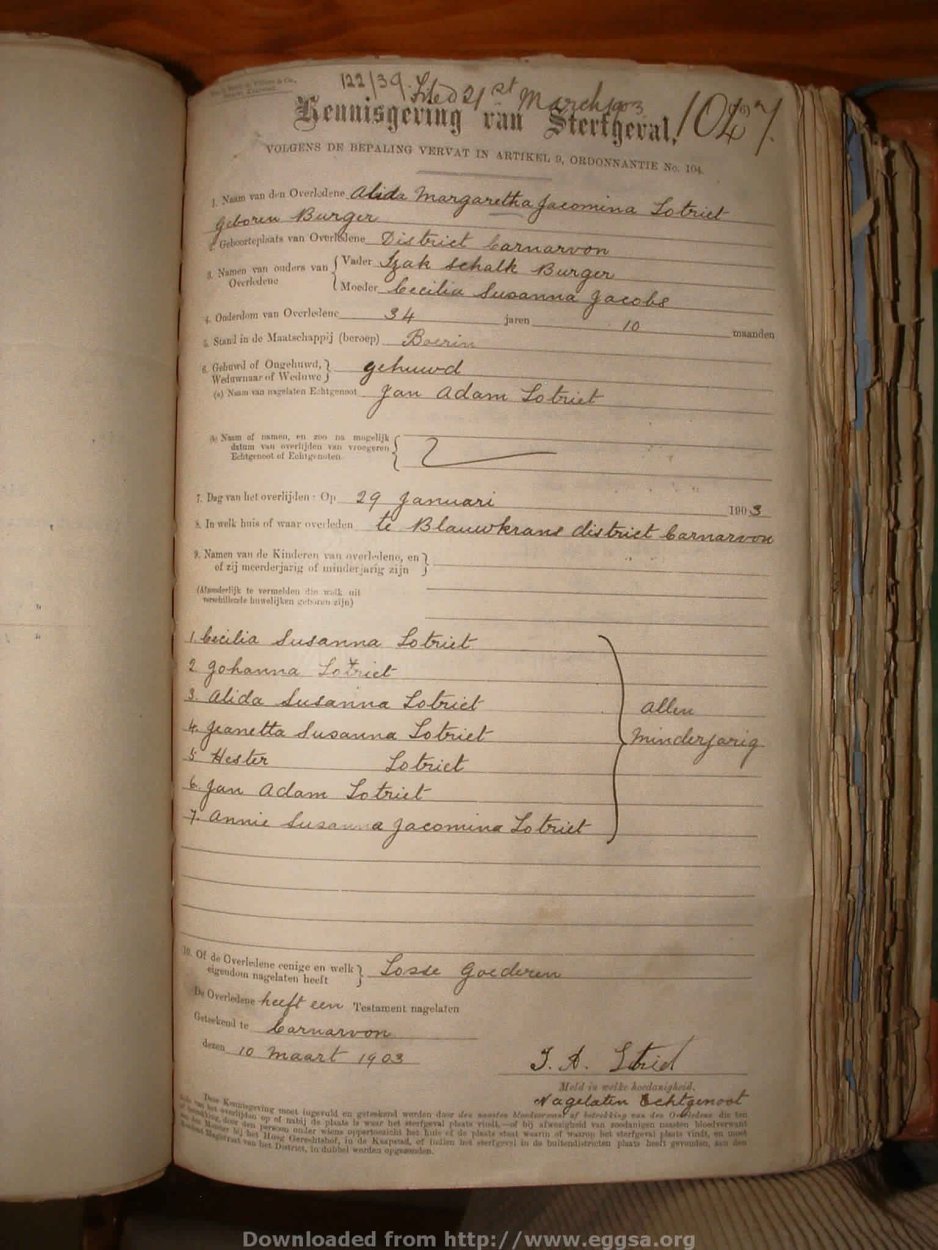 122/39 Filed 21st March 1903
Kennisgeving van Sterfgeval, 1047.
VOLGENS DE BEPALING VERVAT IN ARTIKEL 9, ORDONNANTIE No. 104
1. Naam van den Overledene Alida Margaretha Jacomina Lotriet
geboren Burger
2. Geboorteplaats van Overledene District Carnarvon
3. Namen van ouders van Overledene { Vader Izak Schalk Burger
Moeder Cecilia Susanna Jacobs
4. Ouderdom van Overledene 34 jaren 10 maanden
5. Stand in de Maatschappij (beroep) Boerin
6. Gehuwd of Ongehuwd, Weduwnaar of Weduwe } gehuwd
(a) Naam van nagelaten Echtgenoot Jan Adam Lotriet
(b) Naam of namen, en zoo na mogelijk
datum van overlijden van vroegeren
Echtgenoot of Echtgenoten
7. Dag van het overlijden: Op 29 Januari 1903
8. In welk huis of waar overleden te Blauwkrans district Carnarvon
9. Namen van de Kinderen van overledene, en
of zij meerderjarig of minderjarig zijn }
(Afzonderlijk te vermelden die welk uit
verschillende huwelijken geboren zijn)
1. Cecilia Susanna Lotriet
2 Johanna Lotriet
3. Alida Susanna Lotriet
4. Jeanetta Susanna Lotriet
5 Hester Lotriet
6. Jan Adam Lotriet
7. Annie Susanna Jacomina Lotriet
allen
minderjarig
10. Of de Overledene eenige en welk
eigendom nagelaten heeft } Losse Goederen
De Overledene heeft een Testament nagelaten
Geteekend te Carnarvon
dezen 10 Maart 1903
J. A. Lotriet
Meld in welke hoedanigheid.
Nagelaten Echtgenoot
Deze Kennisgeving moet ingevuld en geteekend worden door den naasten bloedverwant of betrekking van den Overledene die ten
tijde van het overlijden op of nabij de plaats is waar het sterfgeval plaats vindt,—of bij afwezigheid van zoodanigen naasten bloedverwant
of betrekking, door den persoon onder wiens oppertoezicht het huis of de plaats staat waarin of waarop het sterfgeval plaats vindt, en moet
aan den Meester bij het Hoog Gerechtshof, in de Kaapstad, of indien het sterfgeval in de buitendistricten plaats heeft gevonden, aan den
Resident Magistraat van het District, in dubbel worden opgezonden.
Downloaded from http://www.eggsa.org